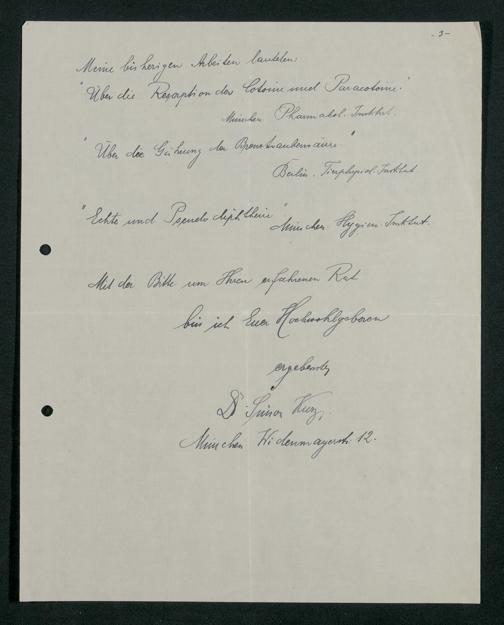 - 3 -
Meine bisherigen Arbeiten lauteten:
"Über die Resorption des Cotoins und Paracotoins."
München Pharmakol. Institut.
"Über die Gährung der Brenztraubensäure"
Berlin. Tierphysiol. Institut
"Echte und Pseudodiphtherie" München Hygien. Institut.
Mit der Bitte um Ihren erfahrenen Rat
bin ich Euer Hochwohlgeboren
ergebenster
Dr. Simon
München Widenmayerstr. 12.